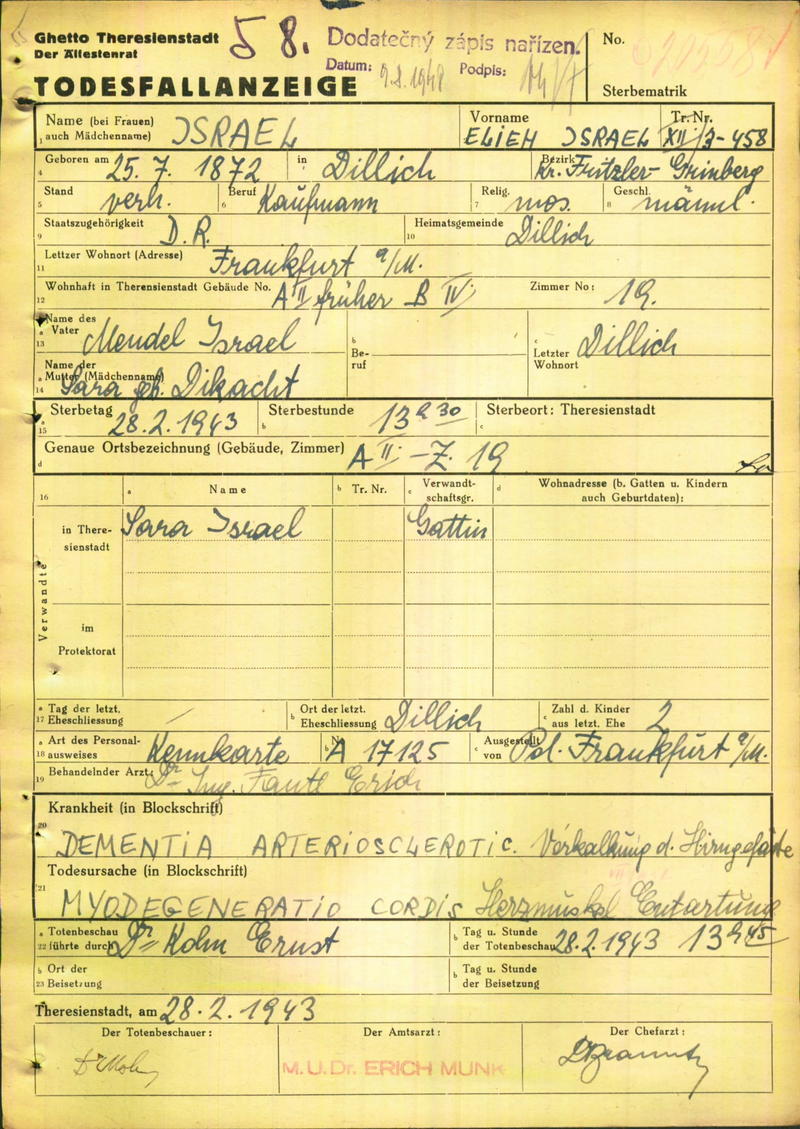 Ghetto Theresienstadt 58. Dodatečný zápis nařízen. No.
Der Ältestenrat Datum: 9.8.1948 Podpis:
TODESFALLANZEIGE Sterbematrik
Name (bei Frauen) auch Mädchenname) ISRAEL Vorname ELIEH ISRAEL Tr. Nr. XII/3-458
1
4 Geboren am 25. 7. 1872 in Dillich Bezirk Kr. Fritzler-Grinberg
5 Stand verh. 6 Beruf Kaufmann 7 Relig. mos. 8 Geschl. männl.
9 Staatszugehörigkeit D. R. 10 Heimatsgemeinde Dillich
11 Lettzer Wohnort (Adresse) Frankfurt a/M.
12 Wohnhaft in Theresienstadt Gebäude No. A II früher B IV Zimmer No: 19.
13 a Name des Vater Mendel Israel b Be-ruf c Letzter Wohnort Dillich
14 a Name der Mutter (Mädchenname) Sara geb. Dikacht
15 a Sterbetag 28.2.1943 b Sterbestunde 13 h 30 c Sterbeort: Theresienstadt
d Genaue Ortsbezeichnung (Gebäude, Zimmer) A II - Z. 19
16 a Name b Tr. Nr. c Verwandt-schaftsgr. d Wohnadresse (b. Gatten u. Kindern auch Geburtdaten):
Verwandte
in There-sienstadt Sara Israel Gattin
im Protektorat
17 a Tag der letzt. Eheschliessung / b Ort der letzt. Eheschliessung Dillich c Zahl d. Kinder aus letzt. Ehe 2
18 a Art des Personal-ausweises Kennkarte b No A 17125 c Ausgestellt von Pol. Frankfurt a/M.
19 Behandelnder Arzt: Dr Ing. Fantl Erich
Krankheit (in Blockschrift)
20 DEMENTIA ARTERIOSCLEROTIC. Verkalkung d. Hirngefäße
Todesursache (in Blockschrift)
21 MYODEGENERATIO CORDIS Herzmuskel Entartung
22 a Totenbeschau führte durch Dr Kohn Ernst b Tag u. Stunde der Totenbeschau 28.2.1943 13 h 45
23 b Ort der Beisetzung b Tag u. Stunde der Beisetzung
Theresienstadt, am 28.2.1943
Der Totenbeschauer: Der Amtsarzt: Der Chefarzt:
M. U. Dr. ERICH MUNK